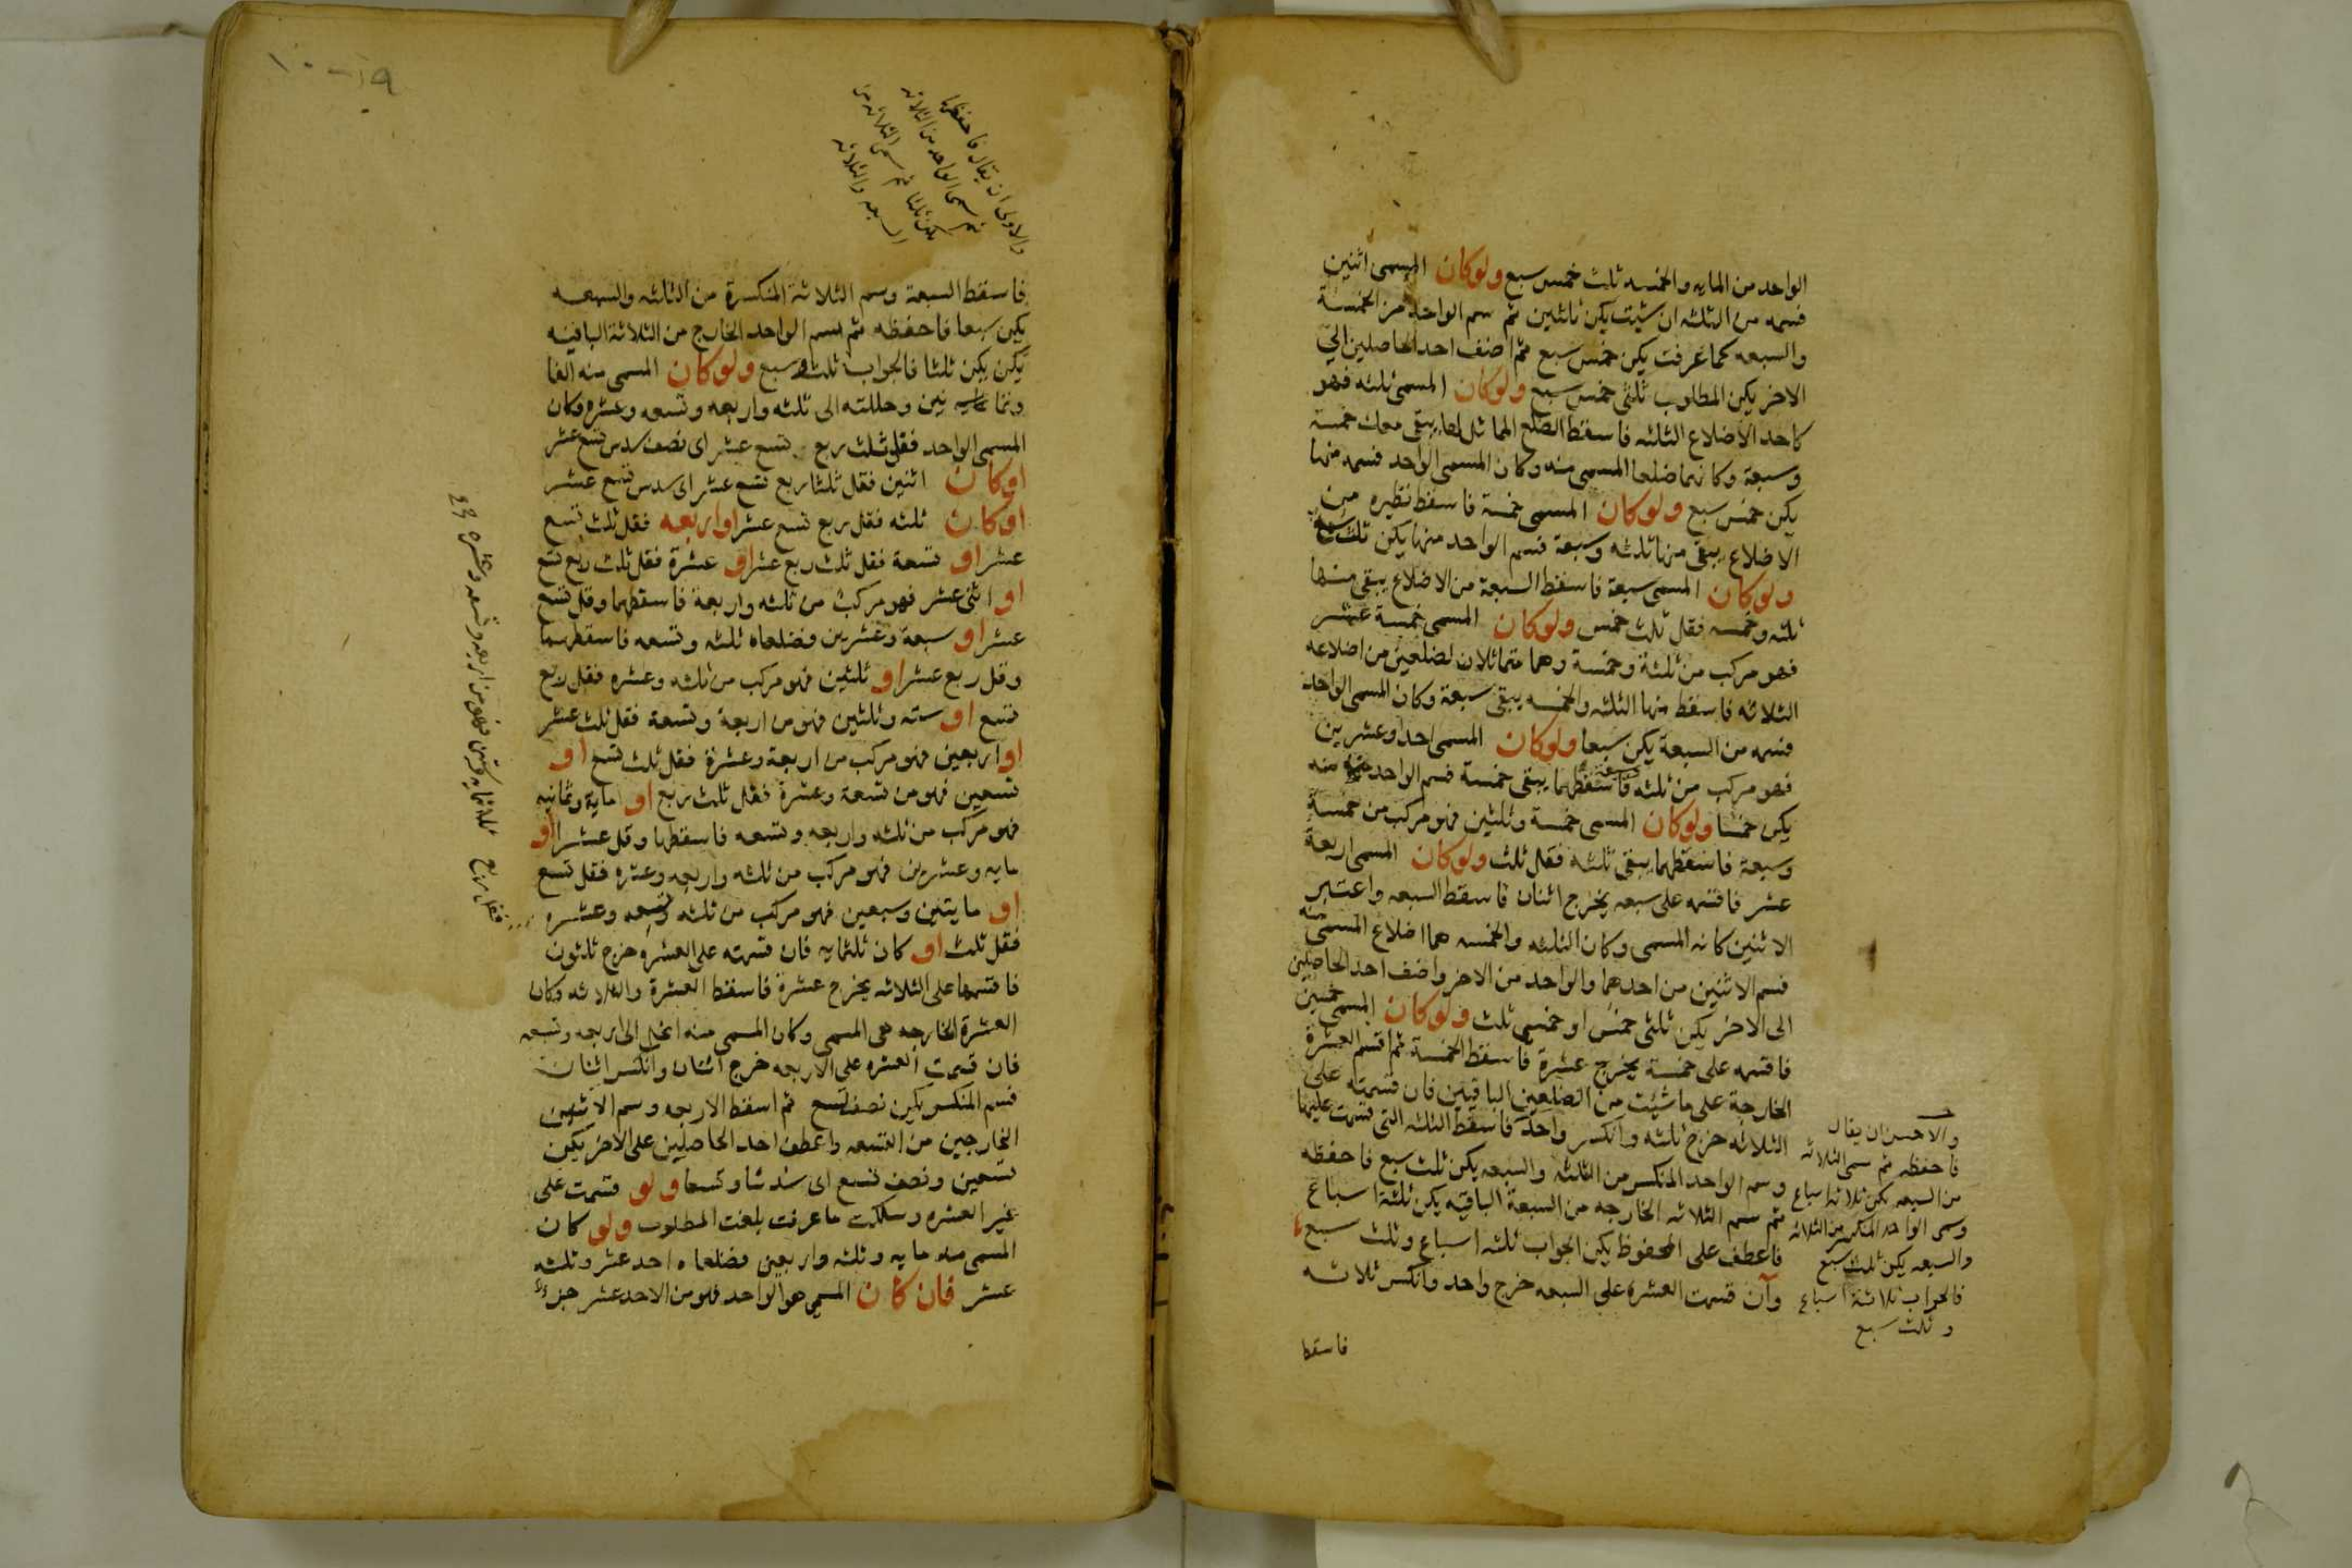 الواحد من المايه والخمسه ثلث خمس سبع ولوكان المسمى اثنين
فسمه من الثلثه ان شيت يكن ثلثين ثم سم الواحد من الخمسة
والسبعه كما عرفت يكن خمس سبع ثم اضف احد الحاصلين الي
الاخر يكن المطلوب ثلثى خمس سبع ولوكان المسمى ثلثه فهو
كاحد الاضلاع الثلثه فاسقط الضلع المماثل لها يبقى معك خمسة
وسبعة وكانهما ضلعا المسمى منه وكان المسمى الواحد فسمه منهما
يكن خمس سبع ولوكان المسمى خمسة فاسقط نظيره من
الاضلاع يبقى منها ثلثه وسبعة فسم الواحد منها يكن ثلث سبع
ولوكان المسمى سبعة فاسقط السبعة من الاضلاع يبقى منها
ثلثه وخمسه فقل ثلث خمس ولوكان المسمى خمسة عشر
فهو مركب من ثلثة وخمسة وهما متماثلان لضلعين من اضلاعه
الثلاثه فاسقط منها الثلثه والخمسه يبقى سبعة وكان المسمى الواحد
فسمه من السبعة يكن سبعا ولوكان المسمى احد وعشرين
فهو مركب من ثلثه وسبعة فاسقطهما يبقى خمسة فسم الواحد منه
يكن خمسا ولوكان المسمى خمسة وثلثين فهو مركب من خمسة
وسبعة فاسقطهما يبقى ثلثه فقل ثلث ولوكان المسمى اربعة
عشر فاقسمه على سبعه يخرج اثنان فاسقط السبعه واعتبر
الاثنين كانه المسمى وكان الثلثه والخمسه هما اضلاع المسمى منه
فسم الاثنين من احدهما والواحد من الاخر واضف احد الحاصلين
الى الاخر يكن ثلثى خمس او خمسى ثلث ولوكان المسمى خمسين
فاقسمه على خمسة يخرج عشرة فاسقط الخمسة ثم اقسم العشرة
الخارجة على ما شيت من الضلعين الباقيين فان قسمته على
الثلاثه خرج ثلثه وانكسر واحد فاسقط الثلثه التى قسمت عليها
وسم الواحد المنكسر من الثلثه والسبعه يكن ثلث سبع فاحفظه
ثم سم الثلاثه الخارجه من السبعة الباقيه يكن ثلثة اسباع
فاعطف على المحفوظ يكن الجواب ثلثه اسباع وثلث سبع
وان قسمت العشرة على السبعه خرج واحد وانكسر ثلاثه
فاسقط
والاحسن ان يقال
فاحفظه ثم سمى الثلاثه
من السبعه يكن ثلاثه اسباع
وسمى الواحد المنكسر من الثلاثه
والسبعه يكن ثلث سبع
فالجواب ثلاثة اسباع
وثلث سبع
١٠-١٩
والاولى ان يقال فاحفظها
ثم سمى الواحد من الثلاثه
يكن ثلثا ثم سمى الثلاثه من
السبعه والثلاثه
فاسقط السبعة وسم الثلاثة المنكسرة من الثلثه والسبعه
يكن سبعا فاحفظه ثم سم الواحد الخارج من الثلاثة الباقيه
يكن يكن ثلثا فالجواب ثلث وسبع ولوكان المسمى منه الفا
وثمانين وحللته الى ثلثه واربعه وتسعه وعشره وكان
المسمى الواحد فقل ثلث ربع تسع عشر اى نصف سدس تسع عشر
اوكان اثنين فقل ثلثا ربع تسع عشر اى سدس تسع عشر
اوكان ثلثه فقل ربع تسع عشر او اربعه فقل ثلث تسع
عشر او تسعة فقل ثلث ربع عشر او عشرة فقل ثلث ربع تسع
او اثنى عشر فهو مركب من ثلثه واربعة فاسقطهما وقل تسع
عشر او سبعة وعشرين فضلعاه ثلثه وتسعه فاسقطهما
وقل ربع عشر او ثلثين فهو مركب من ثلثه وعشره فقل ربع
تسع او سته وثلثين فهو من اربعة وتسعة فقل ثلث عشر
او اربعين فهو مركب من اربعة وعشرة فقل ثلث تسع او
تسعين فهو من تسعة وعشرة فقل ثلث ربع او ماية وثمانيه
فهو مركب من ثلثه واربعه وتسعه فاسقطها وقل عشرا او
مايه وعشرين فهو مركب من ثلثه واربعه وعشره فقل تسع
او مايتين وسبعين فهو مركب من ثلثه وتسعه وعشره
فقل ثلث او كان ثلثمايه فان قسمته على العشره خرج ثلثون
فاقسمها على الثلاثه يخرج عشرة فاسقط العشرة والثلاثه وكان
العشرة الخارجه هى المسمى وكان المسمى منه انحل الى اربعه وتسعه
فان قسمت العشره على الاربعه خرج اثنان وانكسر اثنان
فسم المنكسر يكن نصف تسع ثم اسقط الاربعه وسم الاثنين
الخارجين من التسعه واعطف احد الحاصلين على الاخر يكن
تسعين ونصف تسع اى سدسا وتسعا ولو قسمت على
غير العشره وسلكت ما عرفت بلغت المطلوب ولو كان
المسمى منه مايه وثلثه واربعين فضلعاه احد عشر وثلثه
عشر فان كان المسمى هو الواحد فهو من الاحد عشر جزء